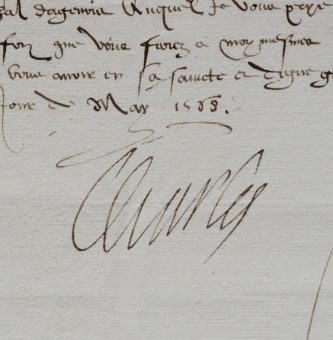 auquel Je vous prye
foy que vous feriez a moy mesmes
vous avoir en sa saincte et digne g
Jour de May 1563.
Charles